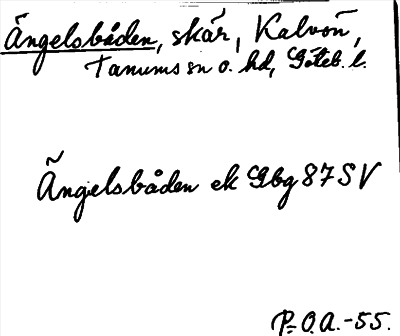 Ängelsbåden, skär, Kalvön,
Tanums sn o. hd, Göteb. l.
Ängelsbåden ek Gbg 87 SV
P.O.A.-55.